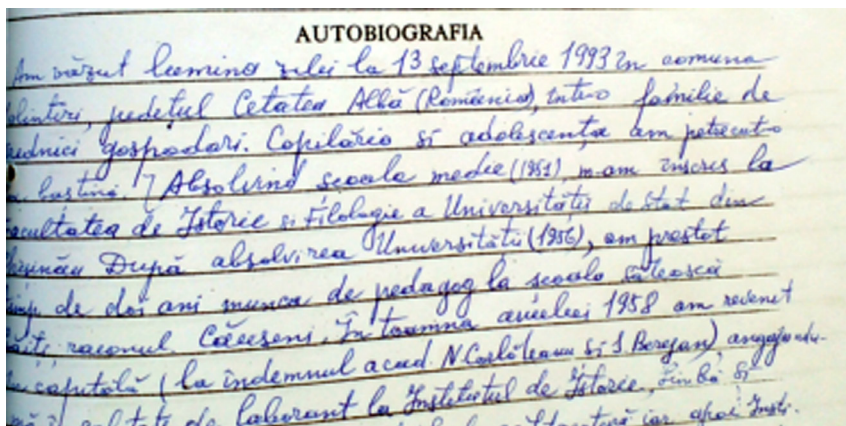 AUTOBIOGRAFIA
Am văzut lumina zilei la 13 septembrie 1993 în comuna
județul Cetatea Albă (România), într-o familie de
gospodari. Copilăria si adolescența am petrecut-o
baștină. Absolvind școala medie (1951), m-am înscris la
Facultatea de Istorie si Filologie a Universității de Stat din
Chișinău După absolvirea Universității (1956), am prestat
timp de doi ani munca de pedagog la școala sătească
raionul Căușeni. În toamna anului 1958 am revenit
în capitală (la îndemnul acad. N. Corlăteanu si I. Borșan)
de laborant la Institutul de Istorie, Limbă și
iar apoi